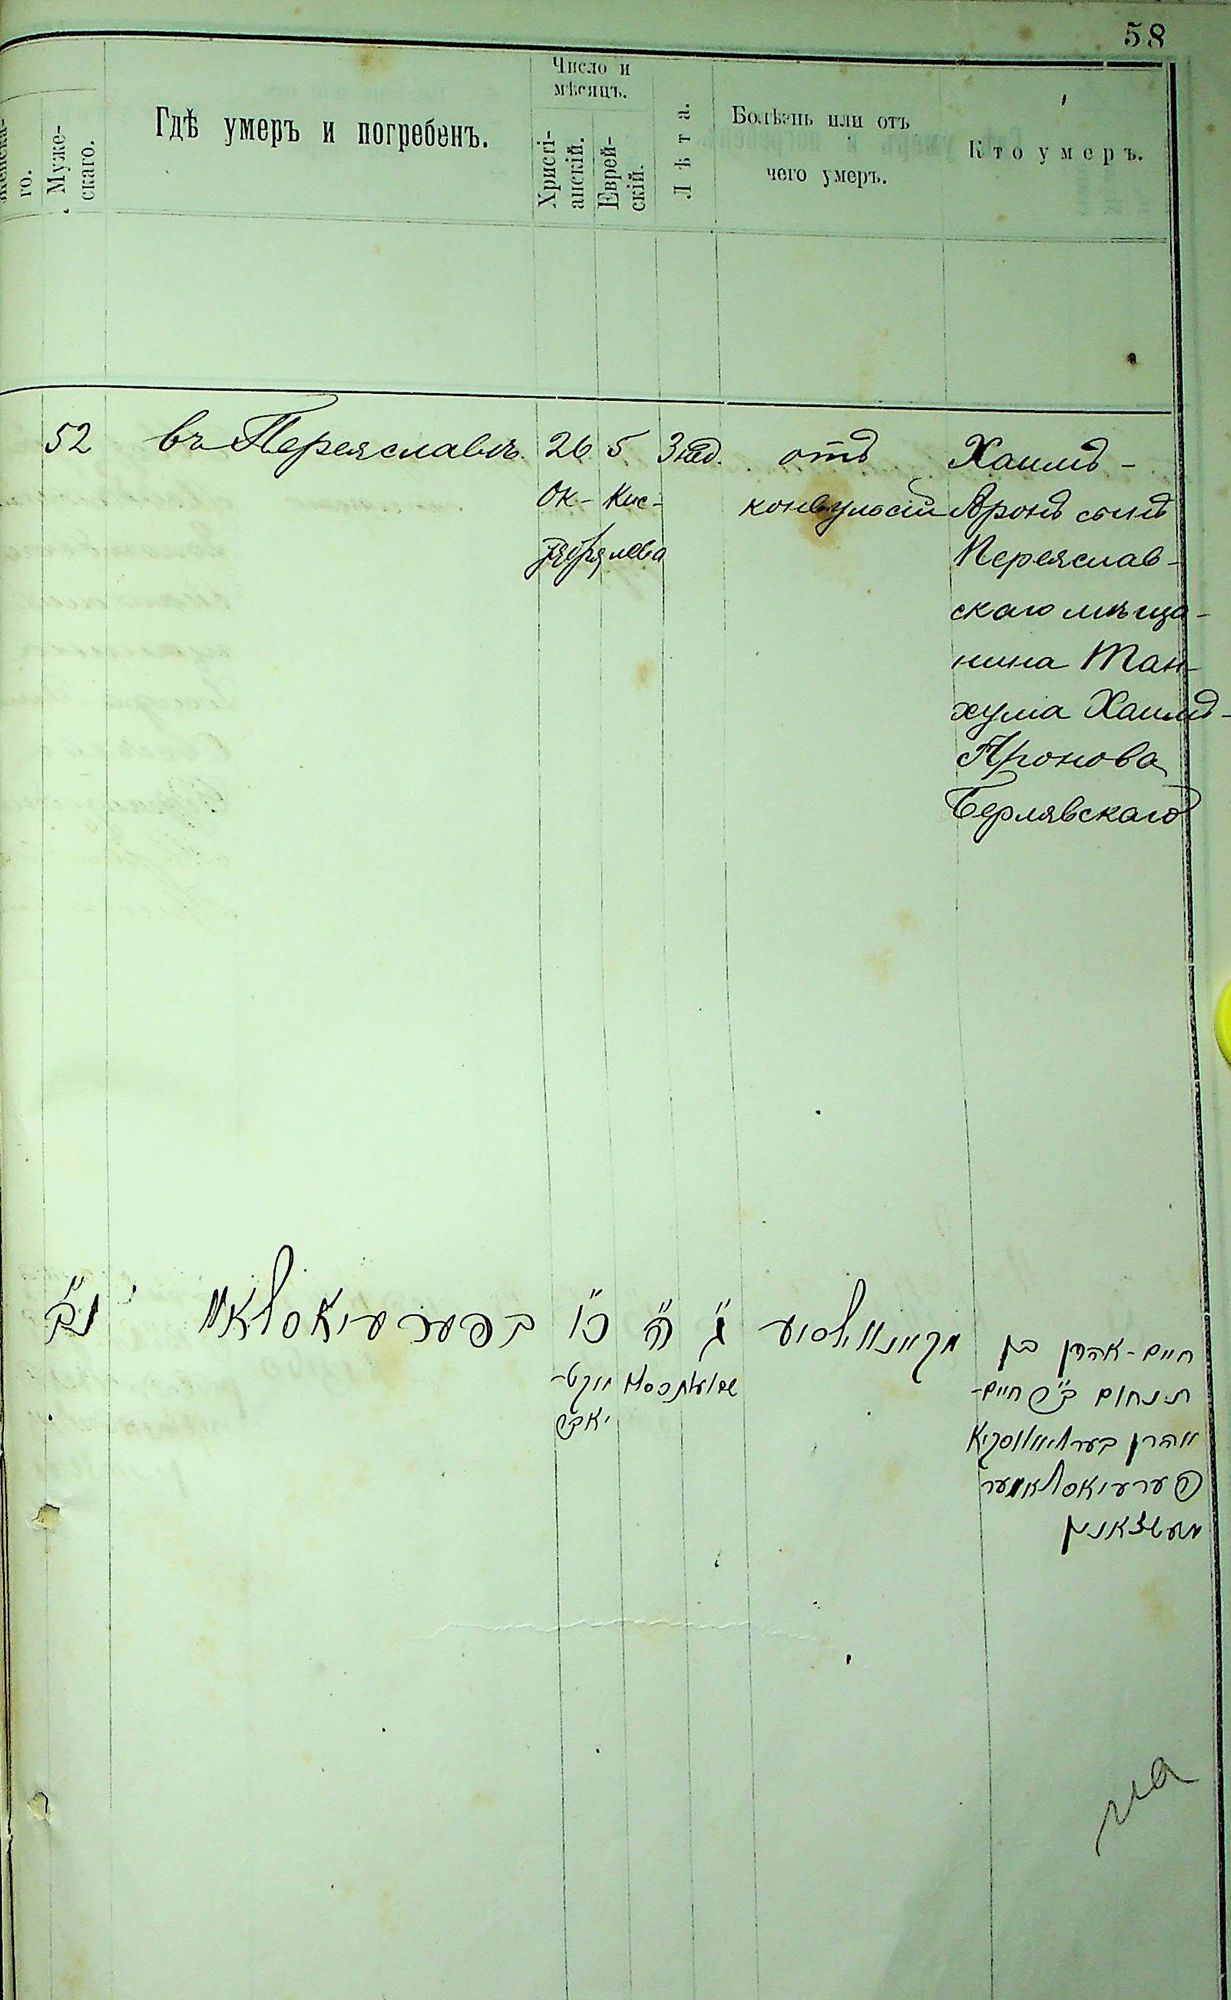 58
го.
Муже-
скаго.
Гдѣ умеръ и погребенъ.
Число и
мѣсяцъ.
Христі-
анскій.
Еврей-
скій.
Лѣта.
Болѣзнь или отъ
чего умеръ.
Кто умеръ.
52
въ Переяславѣ
26
Ок-
тября
5
Кис-
лева
отъ
конвульсій
Хаимъ-
Аронъ сынъ
Переяслав-
скаго мѣща-
нина Тан-
хума Хаимъ-
Аронова
Берлявскаго
נ"ב
בפערעיאסלאוו
כ"ו
ה"
ג"
חיים-אהרן בן
תנחום ב"ר חיים-
אהרן בערליאווסקי
פערעיאסלאווער
מעשצאנין